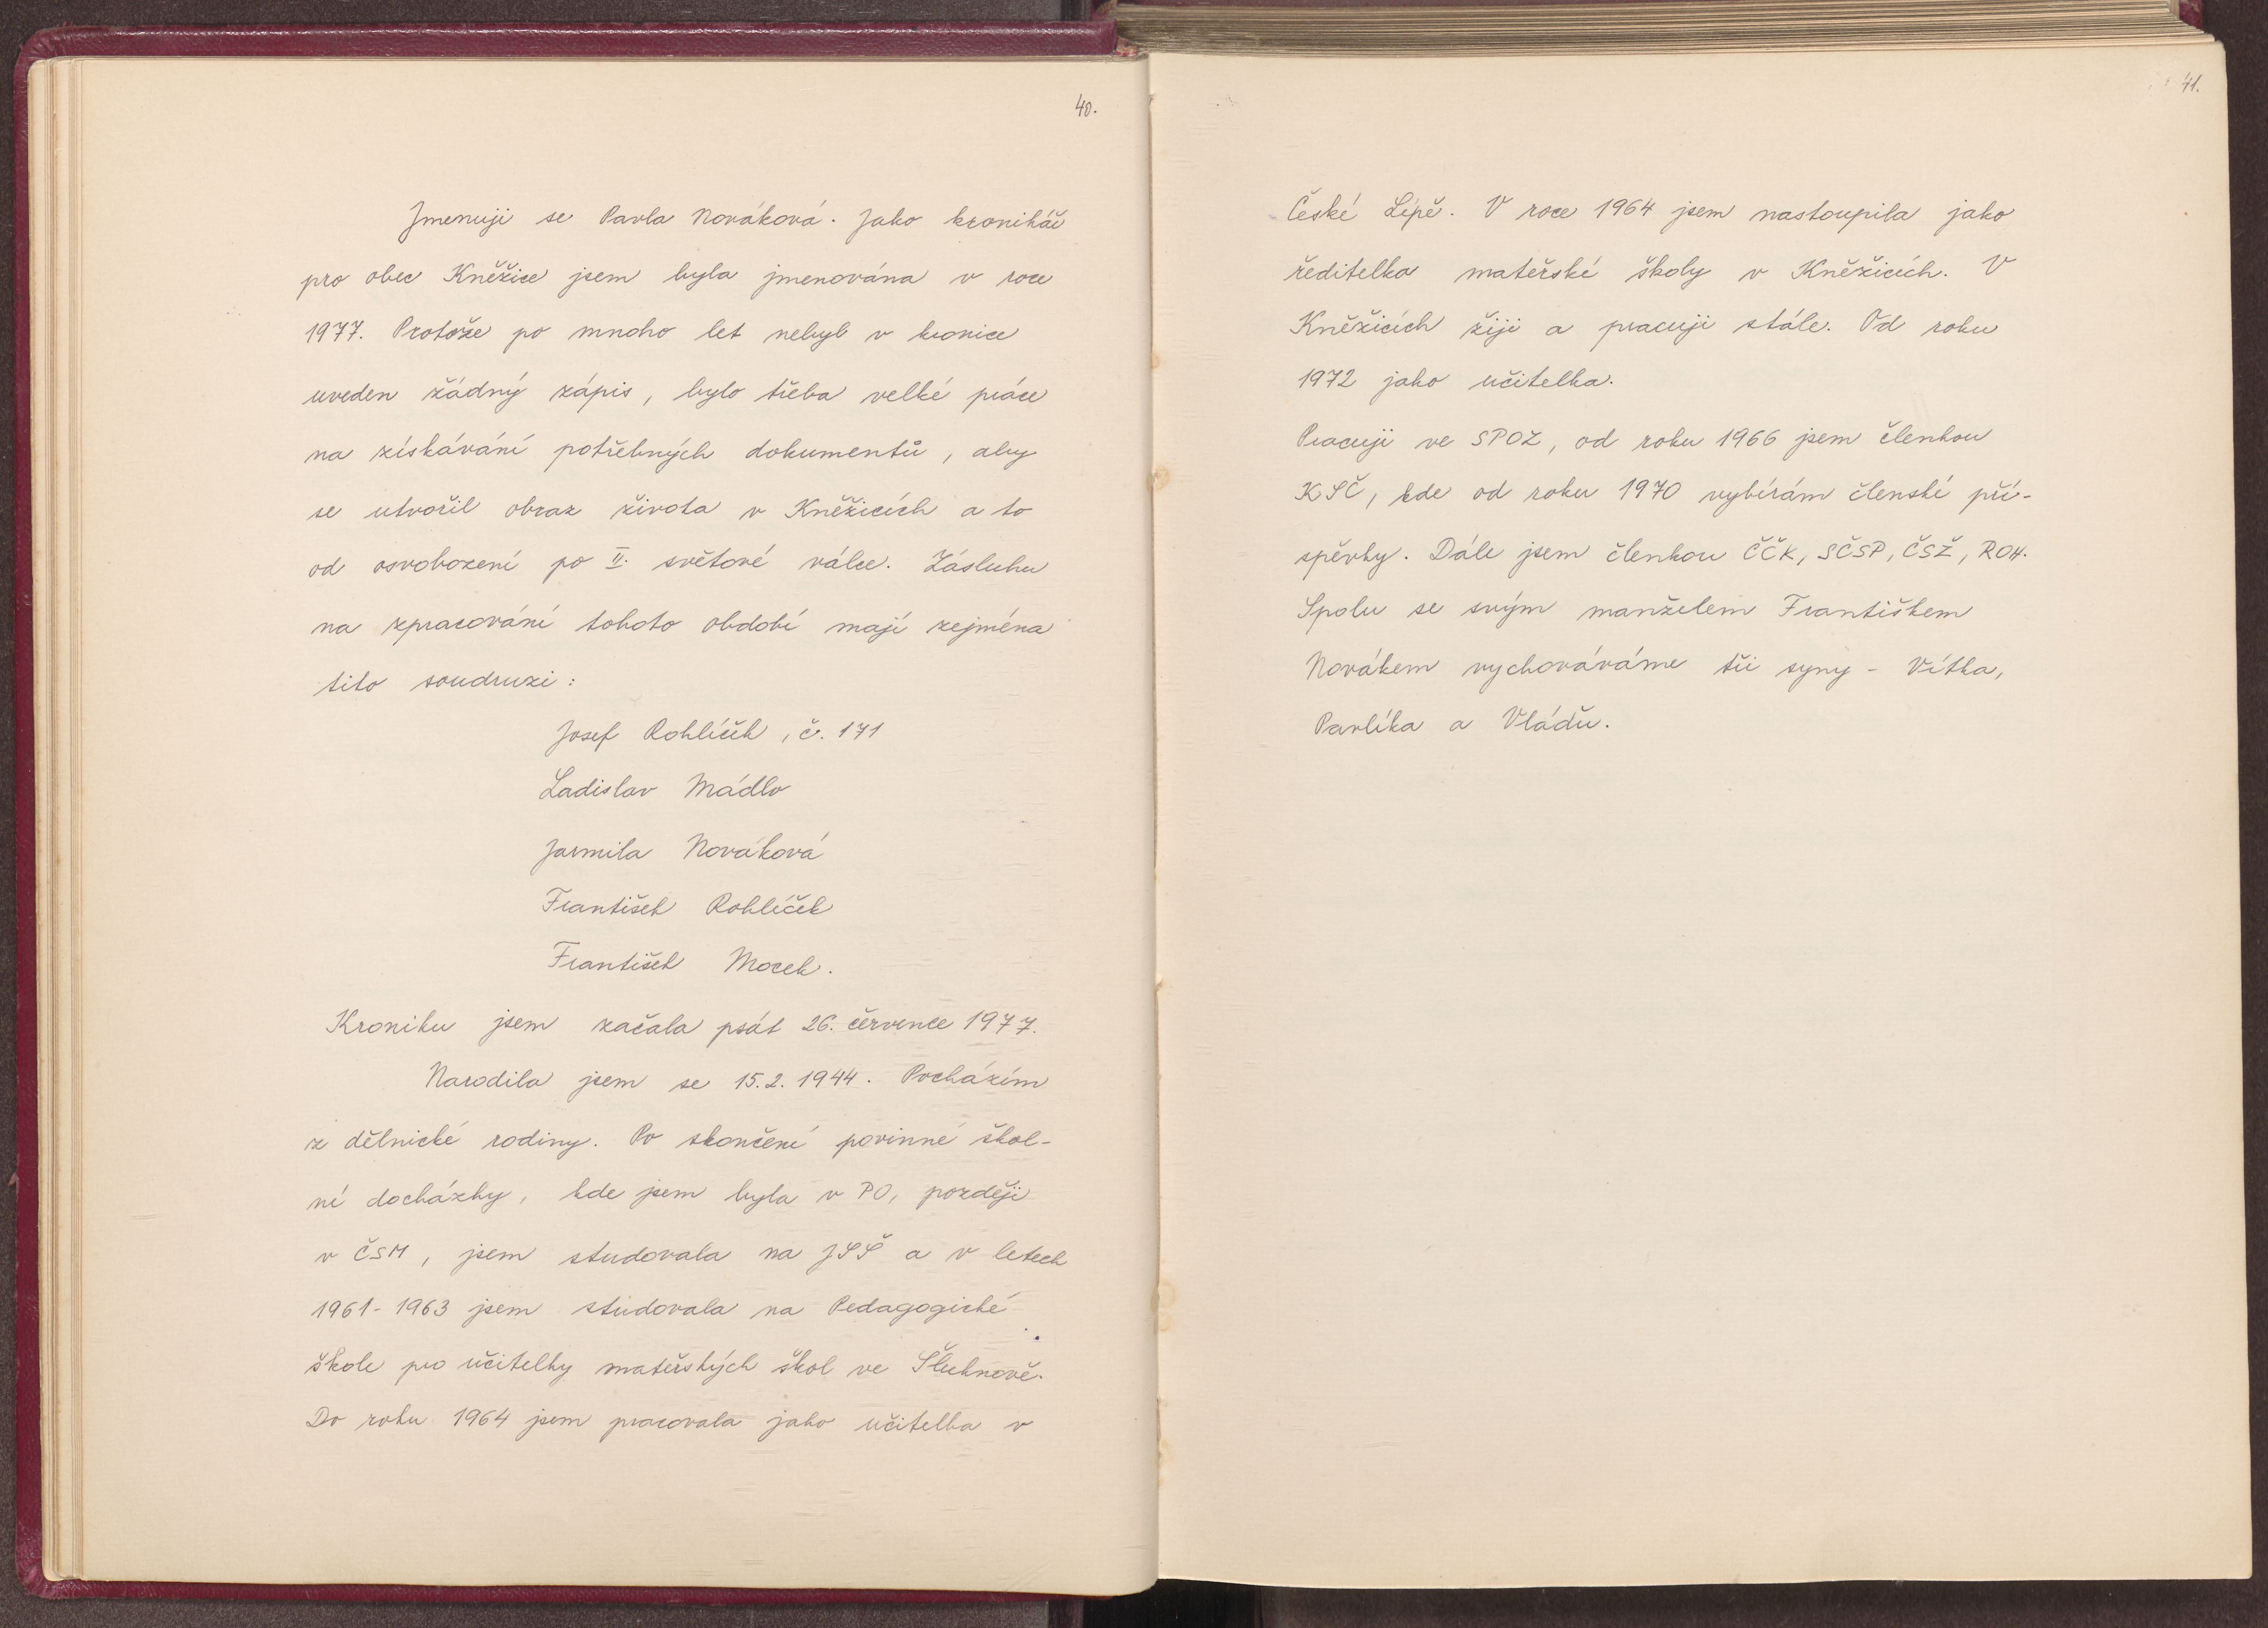 40.
Jmenuji se Pavla Nováková. Jako kronikář
pro obec Kněžice jsem byla jmenována v roce
1977. Protože po mnoho let nebyl v kronice
uveden žádný zápis, bylo třeba velké práce
na získávání potřebných dokumentů, aby
se utvořil obraz života v Kněžicích a to
od osvobození po II. světové válce. Zásluhu
na zpracování tohoto období mají zejména
tito soudruzi:
Josef Rohlíček, č. 171
Ladislav Mádlo
Jarmila Nováková
František Rohlíček
František Mocek.
Kroniku jsem začala psát 26. července 1977.
Narodila jsem se 15.2.1944. Pocházím
z dělnické rodiny. Po skončení povinné škol-
ní docházky, kde jsem byla v PO, později
v ČSM, jsem studovala na JSŠ a v letech
1961-1963 jsem studovala na Pedagogické
škole pro učitelky mateřských škol ve Šluknově.
Do roku 1964 jsem pracovala jako učitelka v
41.
České Lípě. V roce 1964 jsem nastoupila jako
ředitelka mateřské školy v Kněžicích. V
Kněžicích žiji a pracuji stále. Od roku
1972 jako učitelka.
Pracuji ve SPOZ, od roku 1966 jsem členkou
KSČ, kde od roku 1970 vybírám členské pří-
spěvky. Dále jsem členkou ČČK, SČSP, ČSŽ, ROH.
Spolu se svým manželem Františkem
Novákem vychováváme tři syny - Vítka,
Pavlíka a Vláďu.